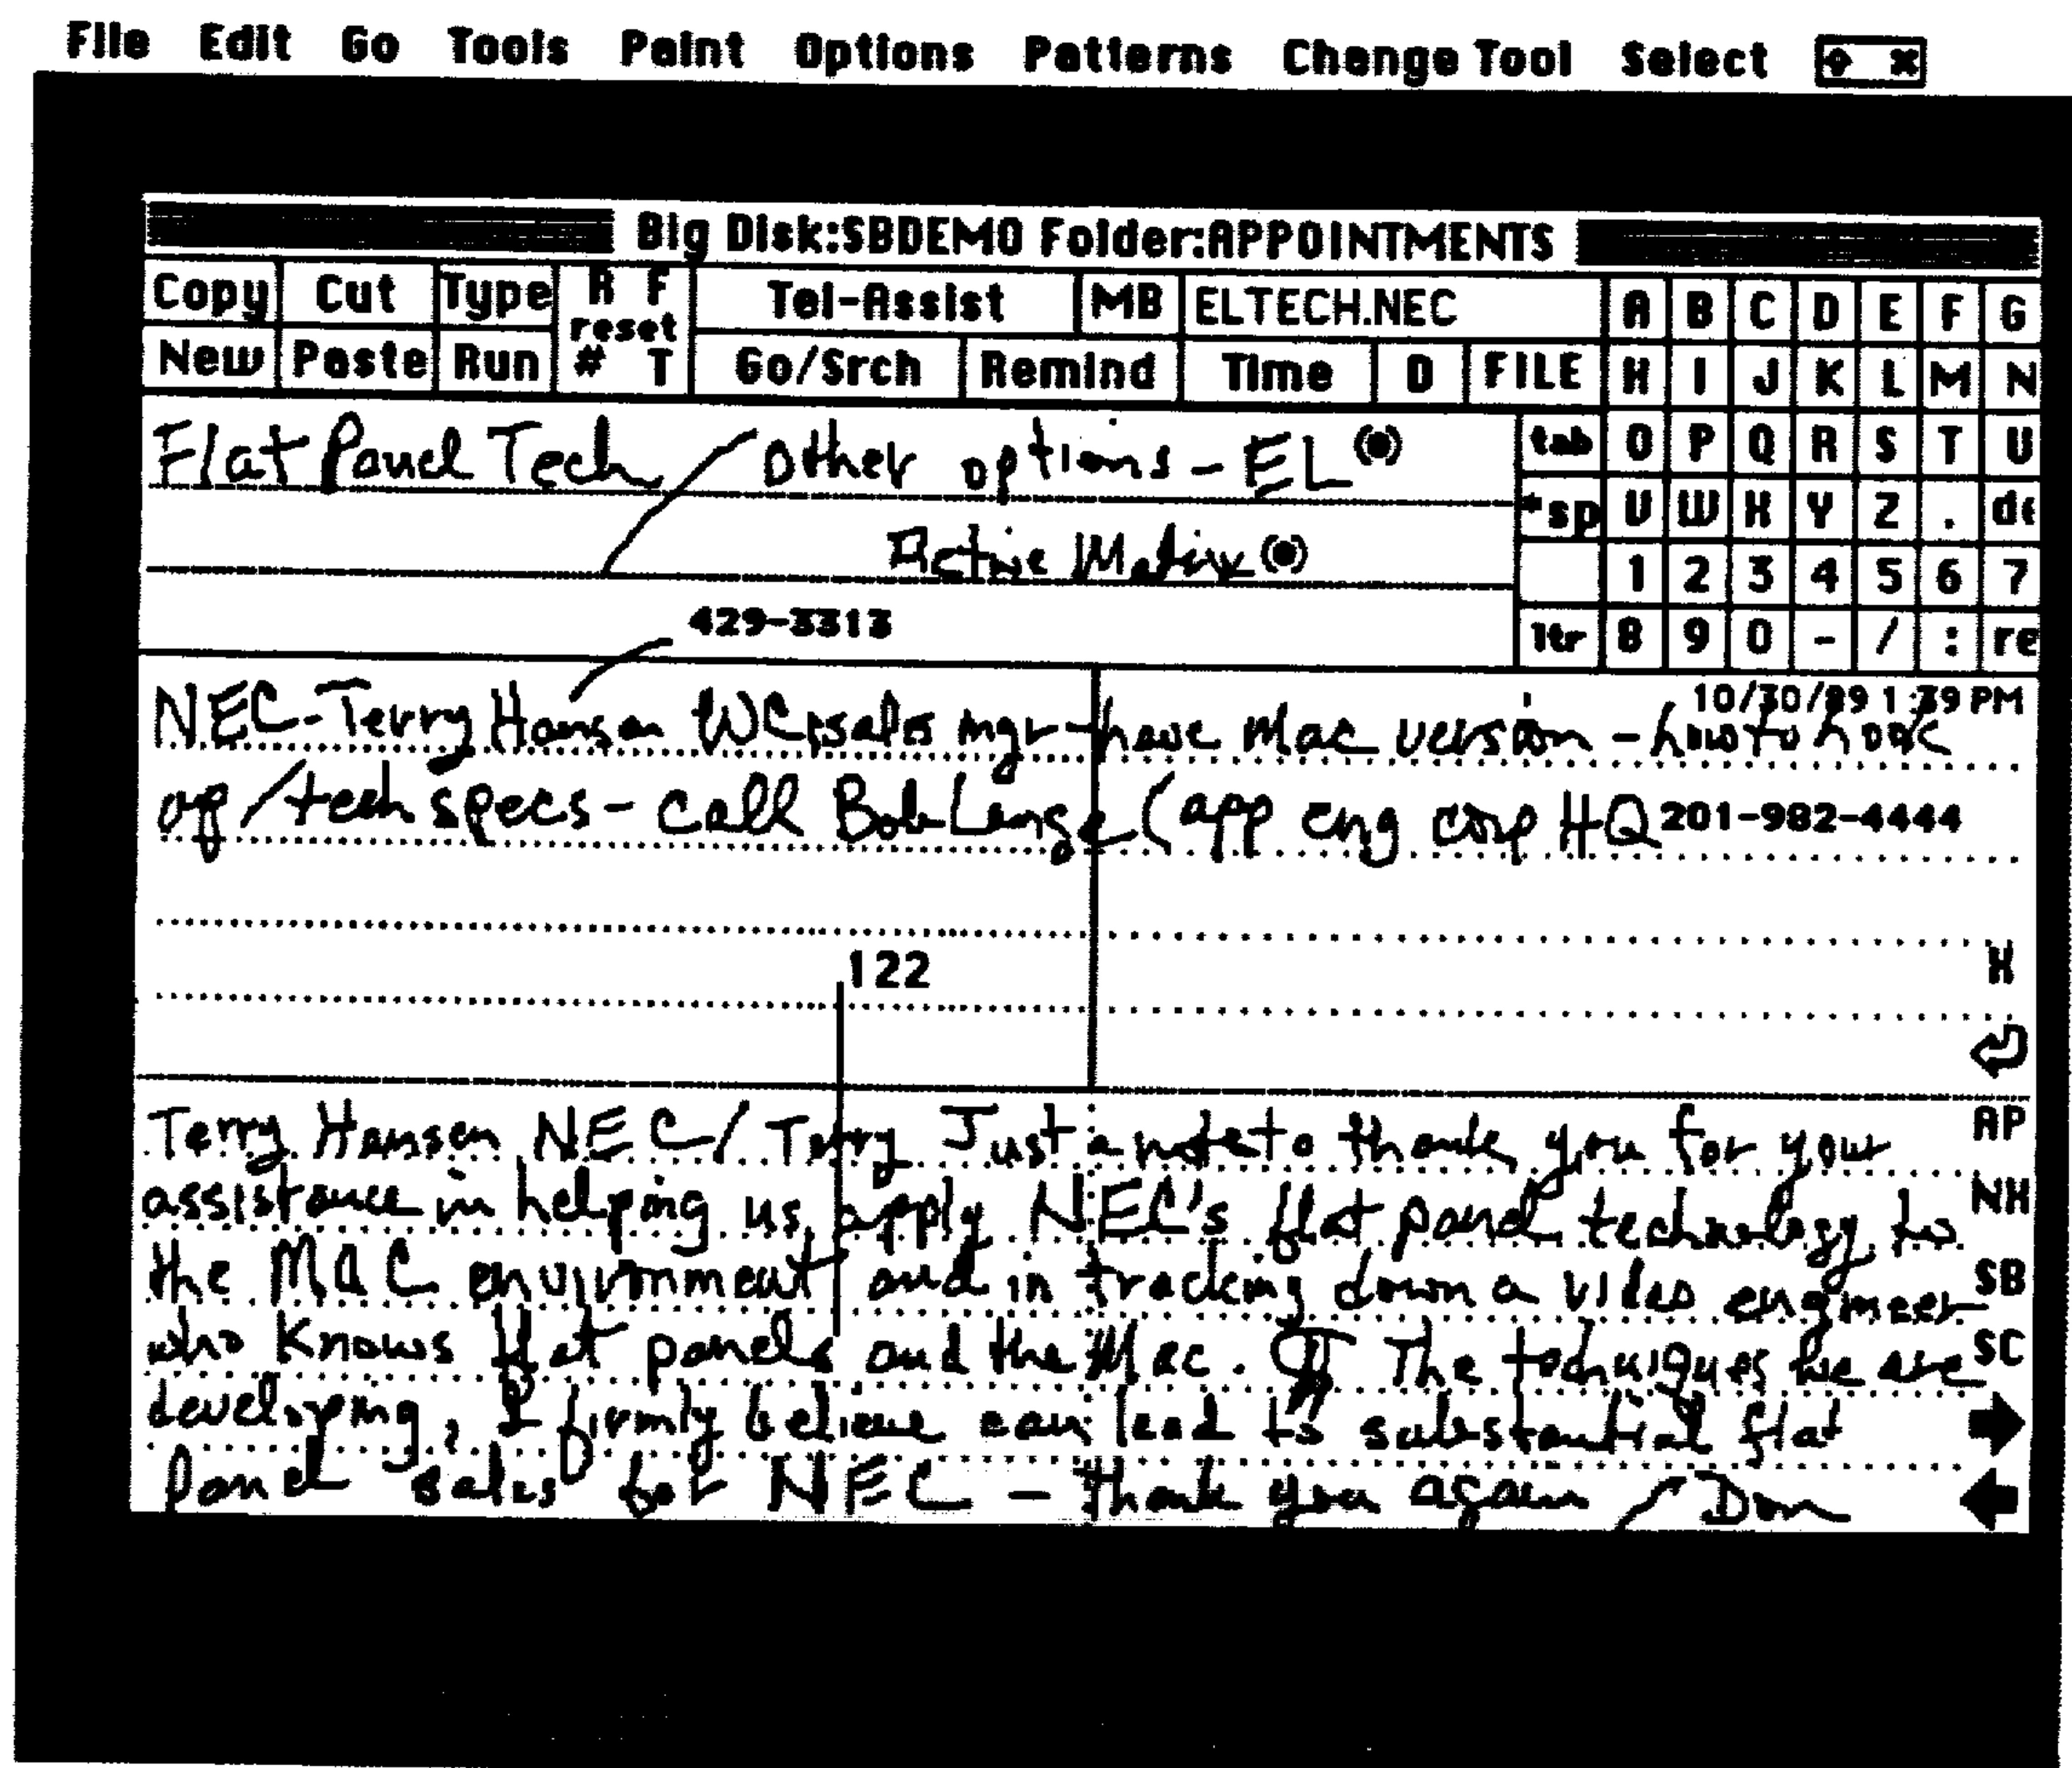 File Edit Go Tools Paint Options Patterns Change Tool Select
Big Disk:SBDEMO Folder:APPOINTMENTS
Copy Cut Type R F Tel-Assist MB ELTECH.NEC A B C D E F G
reset
New Paste Run # T Go/Srch Remind Time D FILE H I J K L M N
Flat Panel Tech / Other options - EL (•) tab O P Q R S T U
*sp V W X Y Z .
Active Matrix (•) 1 2 3 4 5 6 7
429-3313 ltr 8 9 0 - / : re
10/30/89 1:39 PM
NEC-Terry Hansen WC sales mgr-have Mac version - how to hook
up/tech specs - call Bob Lange (app eng corp HQ 201-982-4444
X
122
Terry Hansen NEC/ Terry Just a note to thank you for your AP
assistance in helping us apply NEC's flat panel technology to NH
the MAC environment and in tracking down a video engineer SB
who knows flat panels and the Mac. ¶ The techniques we are SC
developing, I firmly believe can lead to substantial flat
panel sales for NEC - thank you again / Don